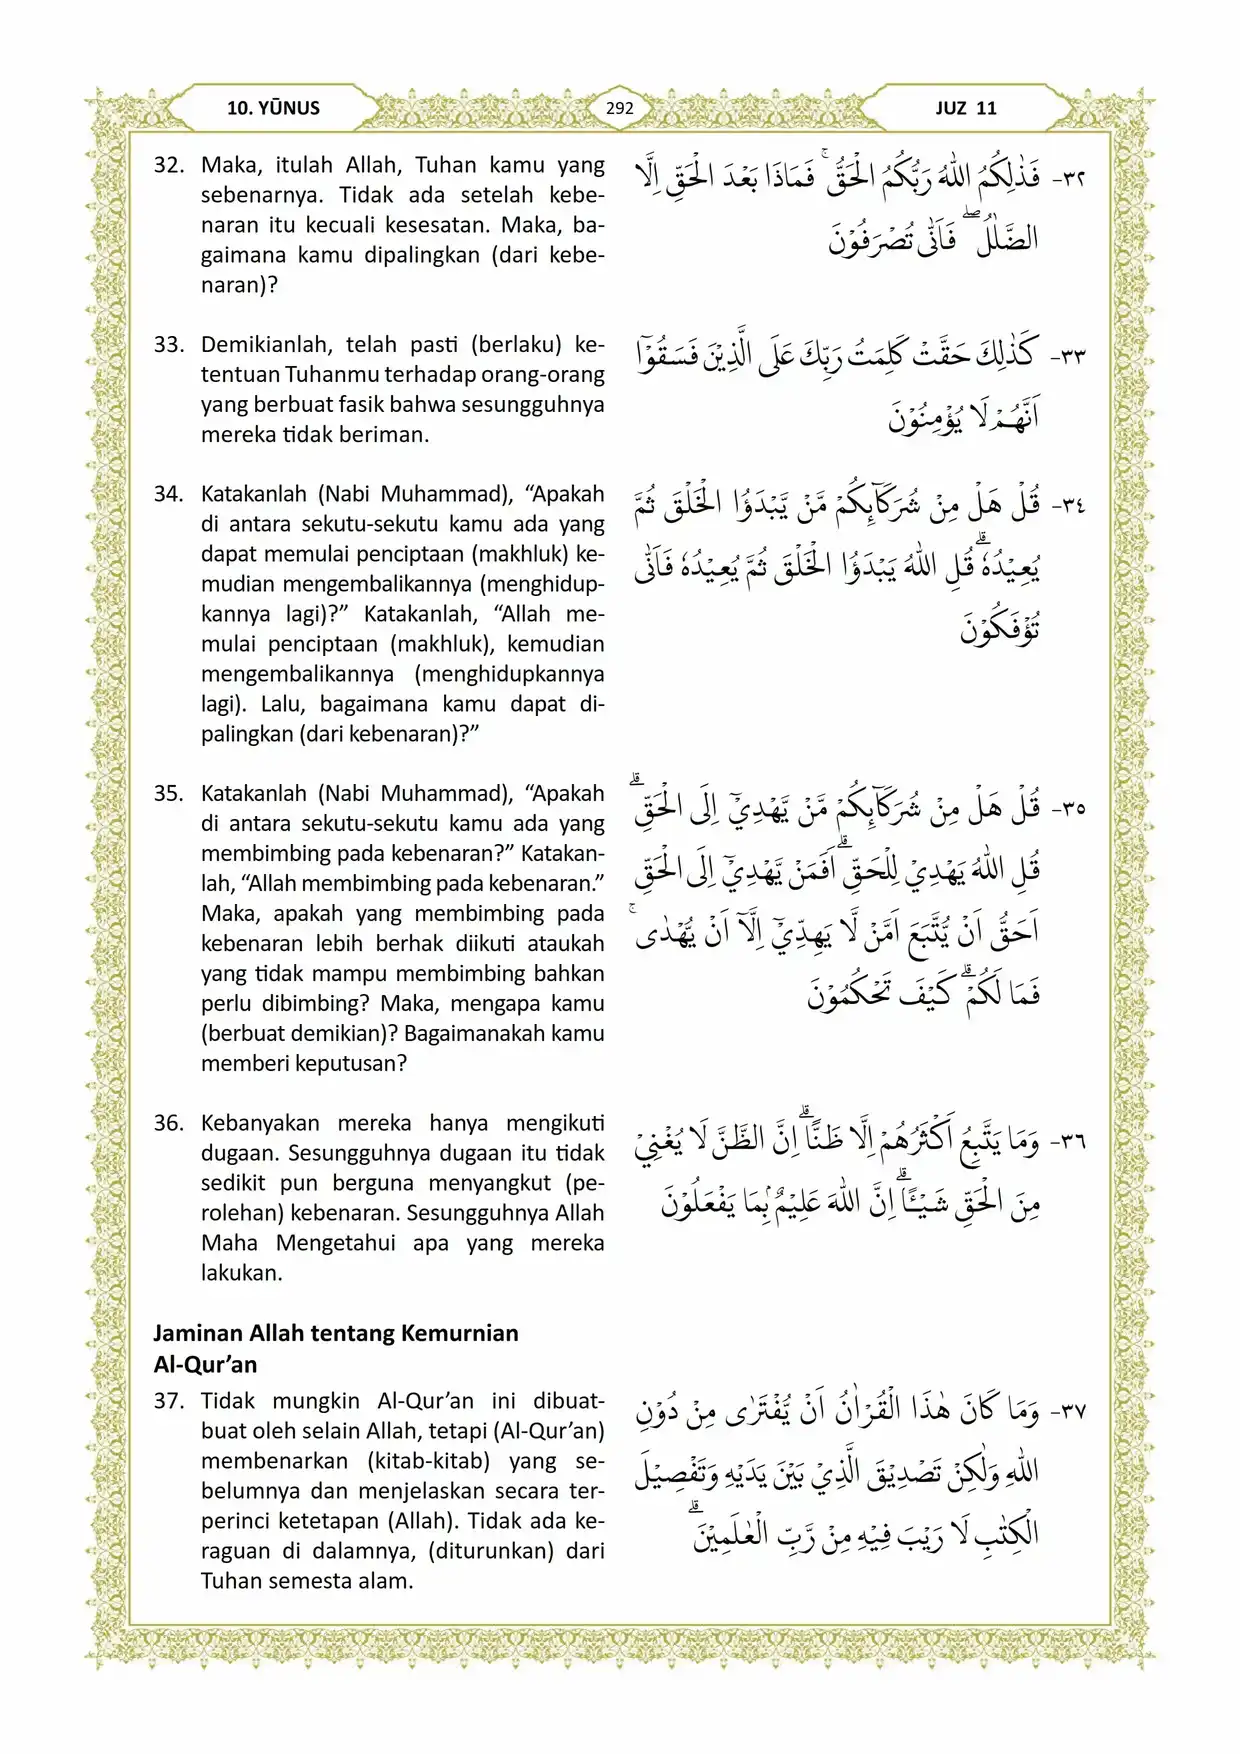 10. YŪNUS
292
JUZ 11
32. Maka, itulah Allah, Tuhan kamu yang
sebenarnya. Tidak ada setelah kebe-
naran itu kecuali kesesatan. Maka, ba-
gaimana kamu dipalingkan (dari kebe-
naran)?
٣٢- فَذٰلِكُمُ اللّٰهُ رَبُّكُمُ الْحَقُّۚ فَمَاذَا بَعْدَ الْحَقِّ اِلَّا
الضَّلٰلُۖ فَاَنّٰى تُصْرَفُوْنَ
33. Demikianlah, telah pasti (berlaku) ke-
tentuan Tuhanmu terhadap orang-orang
yang berbuat fasik bahwa sesungguhnya
mereka tidak beriman.
٣٣- كَذٰلِكَ حَقَّتْ كَلِمَتُ رَبِّكَ عَلَى الَّذِيْنَ فَسَقُوْٓا
اَنَّهُمْ لَا يُؤْمِنُوْنَ
34. Katakanlah (Nabi Muhammad), “Apakah
di antara sekutu-sekutu kamu ada yang
dapat memulai penciptaan (makhluk) ke-
mudian mengembalikannya (menghidup-
kannya lagi)?” Katakanlah, “Allah me-
mulai penciptaan (makhluk), kemudian
mengembalikannya (menghidupkannya
lagi). Lalu, bagaimana kamu dapat di-
palingkan (dari kebenaran)?”
٣٤- قُلْ هَلْ مِنْ شُرَكَاۤىِٕكُمْ مَّنْ يَّبْدَؤُا الْخَلْقَ ثُمَّ
يُعِيْدُهٗۗ قُلِ اللّٰهُ يَبْدَؤُا الْخَلْقَ ثُمَّ يُعِيْدُهٗ فَاَنّٰى
تُؤْفَكُوْنَ
35. Katakanlah (Nabi Muhammad), “Apakah
di antara sekutu-sekutu kamu ada yang
membimbing pada kebenaran?” Katakan-
lah, “Allah membimbing pada kebenaran.”
Maka, apakah yang membimbing pada
kebenaran lebih berhak diikuti ataukah
yang tidak mampu membimbing bahkan
perlu dibimbing? Maka, mengapa kamu
(berbuat demikian)? Bagaimanakah kamu
memberi keputusan?
٣٥- قُلْ هَلْ مِنْ شُرَكَاۤىِٕكُمْ مَّنْ يَّهْدِيْٓ اِلَى الْحَقِّۗ
قُلِ اللّٰهُ يَهْدِيْ لِلْحَقِّۗ اَفَمَنْ يَّهْدِيْٓ اِلَى الْحَقِّ
اَحَقُّ اَنْ يُّتَّبَعَ اَمَّنْ لَّا يَهِدِّيْٓ اِلَّآ اَنْ يُّهْدٰىۚ
فَمَا لَكُمْۗ كَيْفَ تَحْكُمُوْنَ
36. Kebanyakan mereka hanya mengikuti
dugaan. Sesungguhnya dugaan itu tidak
sedikit pun berguna menyangkut (pe-
rolehan) kebenaran. Sesungguhnya Allah
Maha Mengetahui apa yang mereka
lakukan.
٣٦- وَمَا يَتَّبِعُ اَكْثَرُهُمْ اِلَّا ظَنًّاۗ اِنَّ الظَّنَّ لَا يُغْنِيْ
مِنَ الْحَقِّ شَيْـًٔاۗ اِنَّ اللّٰهَ عَلِيْمٌۢ بِمَا يَفْعَلُوْنَ
Jaminan Allah tentang Kemurnian
Al-Qur’an
37. Tidak mungkin Al-Qur’an ini dibuat-
buat oleh selain Allah, tetapi (Al-Qur’an)
membenarkan (kitab-kitab) yang se-
belumnya dan menjelaskan secara ter-
perinci ketetapan (Allah). Tidak ada ke-
raguan di dalamnya, (diturunkan) dari
Tuhan semesta alam.
٣٧- وَمَا كَانَ هٰذَا الْقُرْاٰنُ اَنْ يُّفْتَرٰى مِنْ دُوْنِ
اللّٰهِ وَلٰكِنْ تَصْدِيْقَ الَّذِيْ بَيْنَ يَدَيْهِ وَتَفْصِيْلَ
الْكِتٰبِ لَا رَيْبَ فِيْهِ مِنْ رَّبِّ الْعٰلَمِيْنَۗ